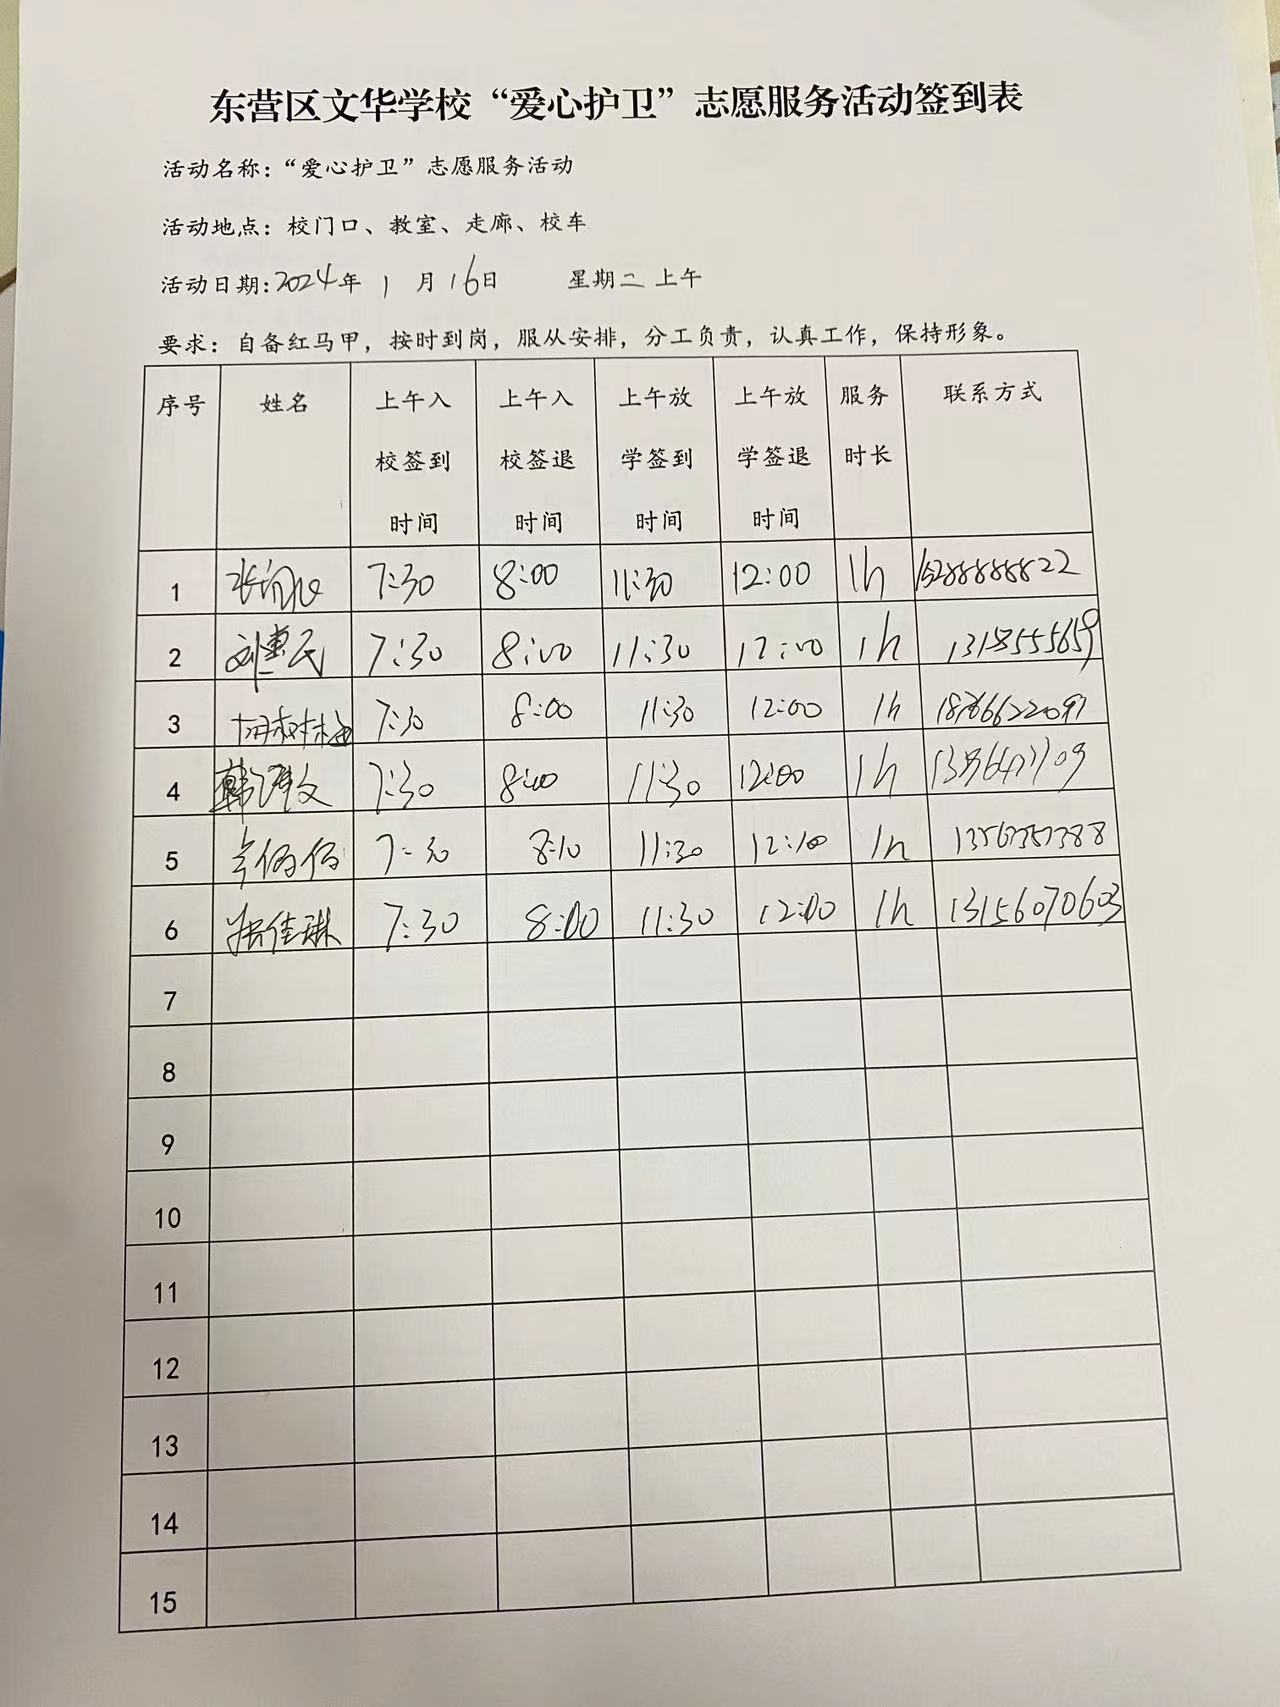 东营区文华学校“爱心护卫”志愿服务活动签到表
活动名称：“爱心护卫”志愿服务活动
活动地点：校门口、教室、走廊、校车
活动日期:2024年 1 月 16日 星期二 上午
要求：自备红马甲，按时到岗，服从安排，分工负责，认真工作，保持形象。
序号 姓名 上午入校签到时间 上午入校签退时间 上午放学签到时间 上午放学签退时间 服务时长 联系方式
1 7:30 8:00 11:30 12:00 1h 15288888822
2 刘惠民 7:30 8:00 11:30 12:00 1h
3 7:30 8:00 11:30 12:00 1h 18766622091
4 7:30 8:00 11:30 12:00 1h
5 7:30 8:10 11:30 12:10 1h
6 张佳琳 7:30 8:00 11:30 12:00 1h 13156070603
7
8
9
10
11
12
13
14
15